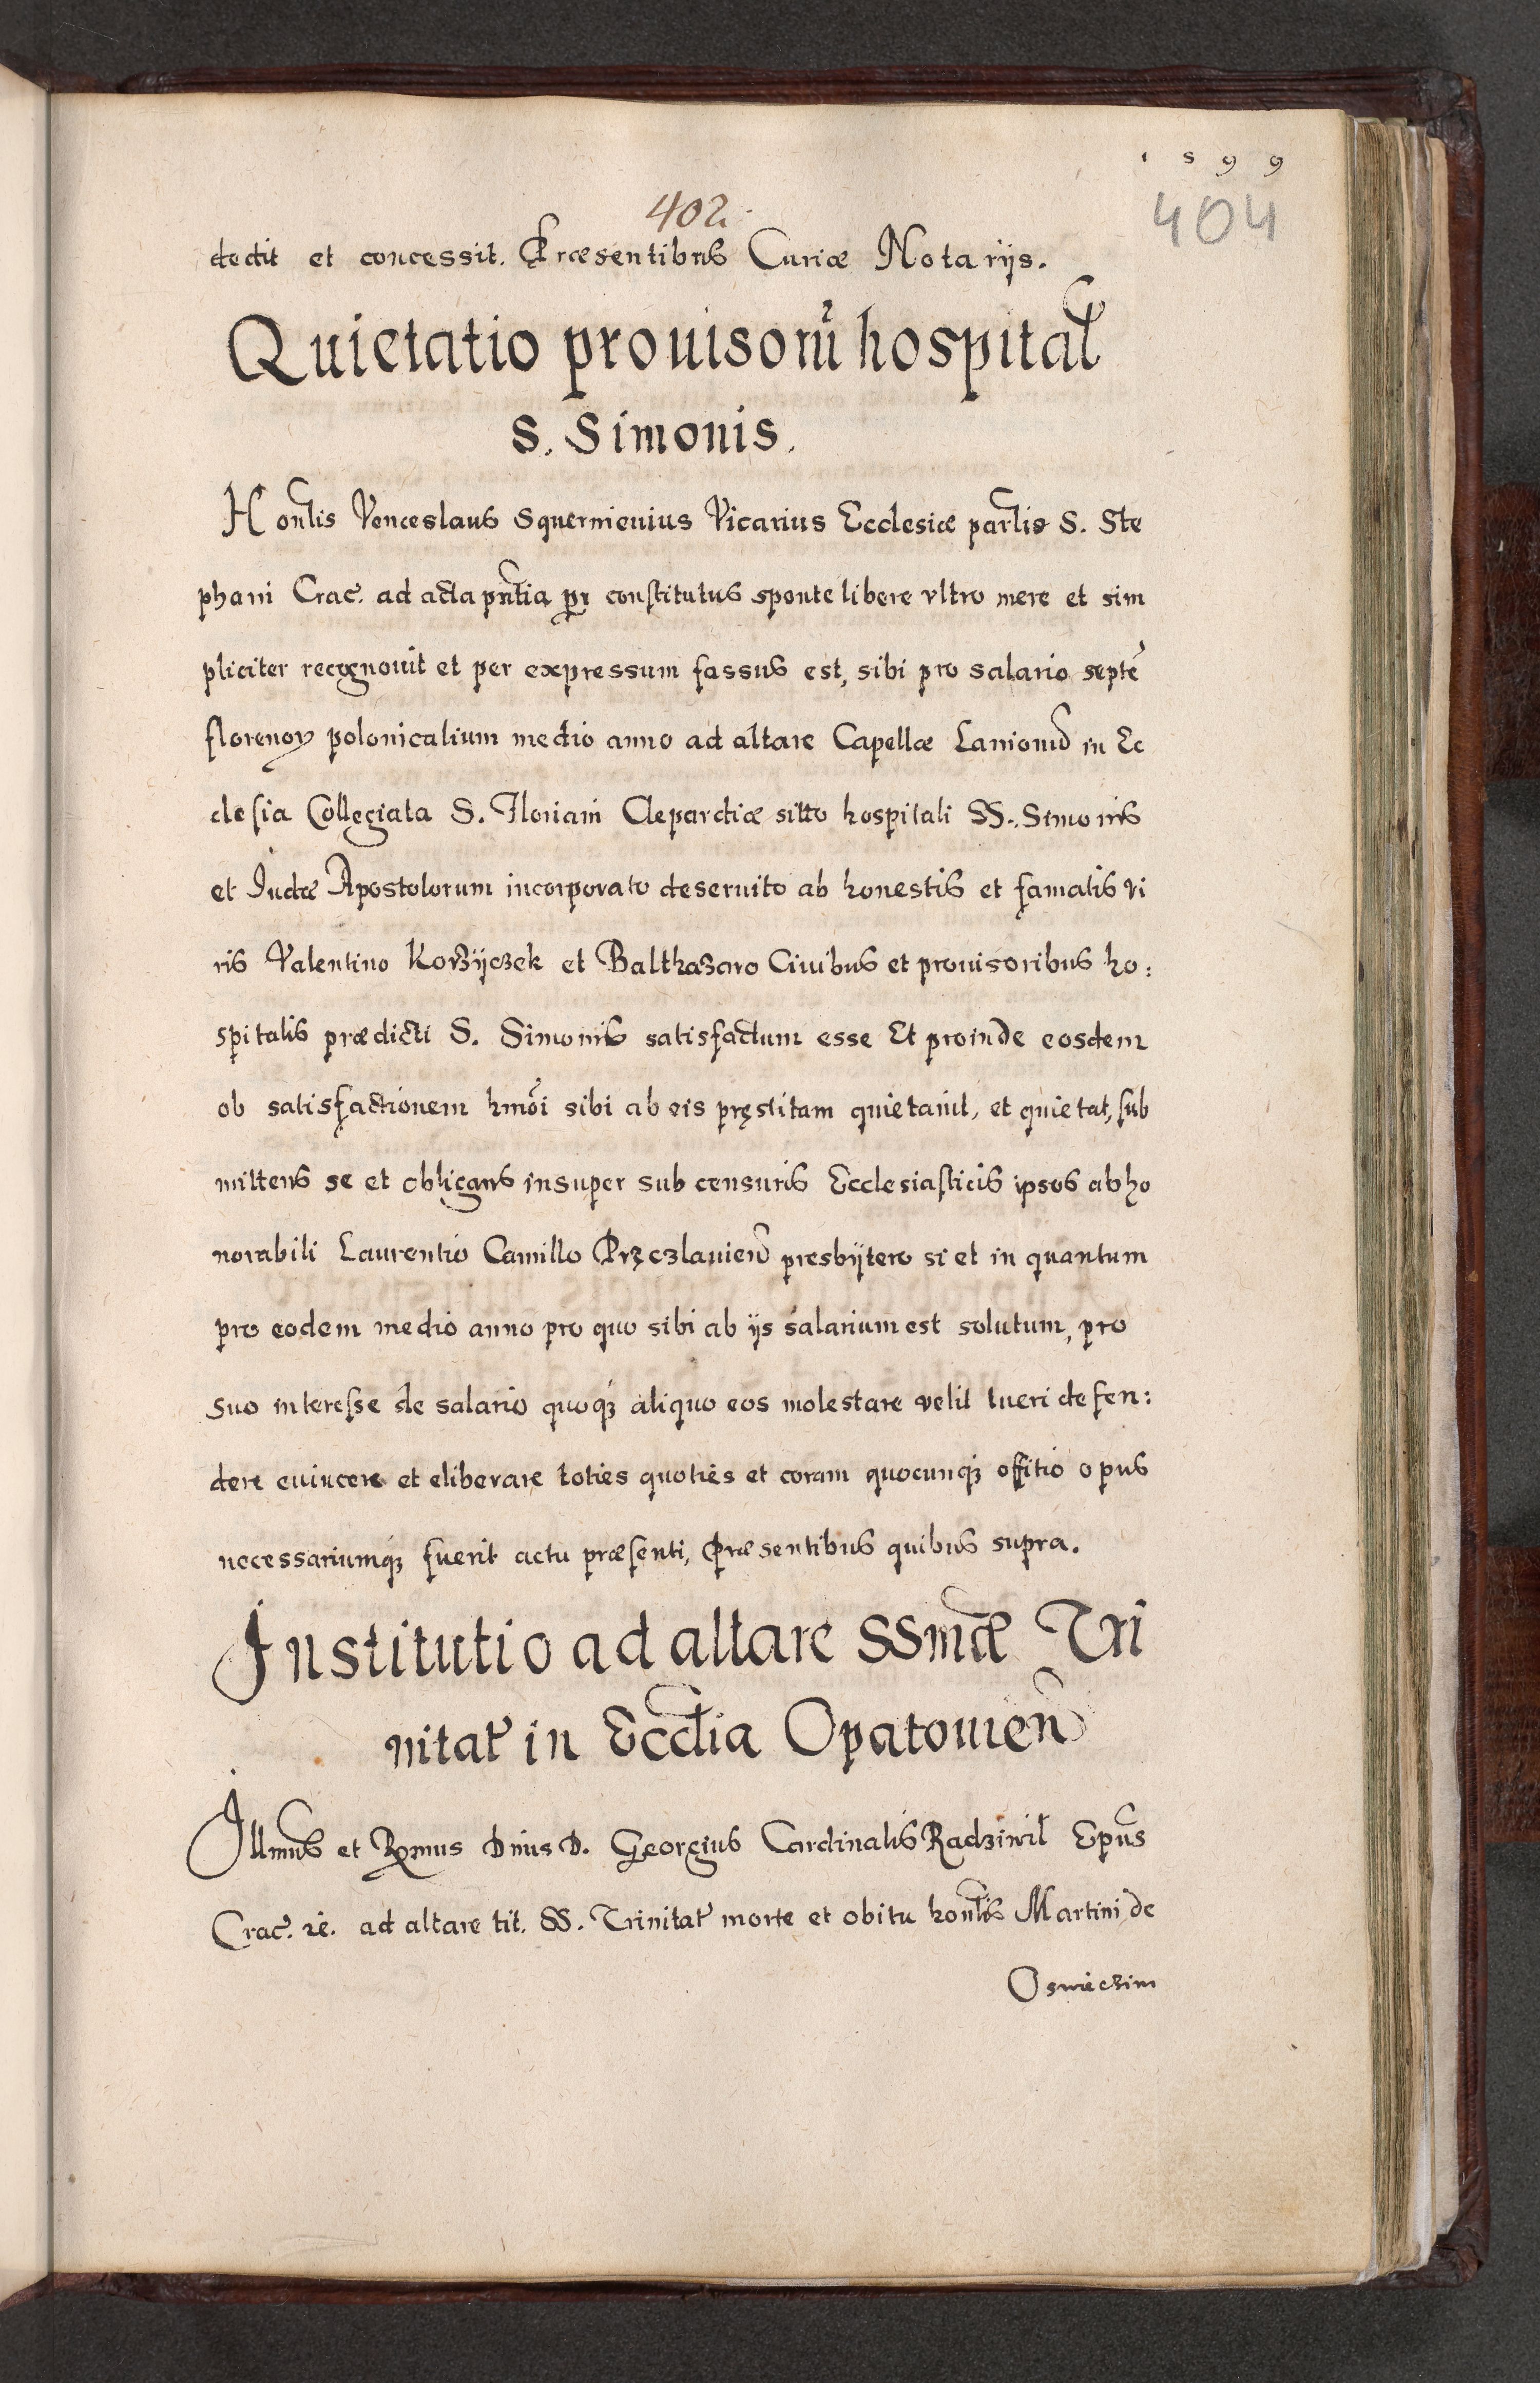 1599
404
402
dedit et concessit. Præsentibus Curiæ Notarijs.
Quietatio prouisorũ hospital
S. Simonis.
Honlis Venceslaus Squernieuius Vicarius Ecclesiæ parlis S. Ste
phani Crac. ad acta pntia pr constitutus sponte libere vltro mere et sim
pliciter recognouit et per expressum fassus est, sibi pro salario septẽ
florenoꝝ polonicalium medio anno ad altare Capellæ Lanionũ in Ec
clesia Collegiata S. Floriani Clepardiæ sitto hospitali SS. Simonis
et Iudæ Apostolorum incorporato deseruito ab honestis et famatis vi
ris Valentino Korzÿczek et Balthazaro Ciuibus et prouisoribus ho:
spitalis prædicti S. Simonis satisfactum esse Et proinde eosdem
ob satisfactionem hmõi sibi ab eis pręstitam quietauit, et quietat, sub
mittens se et obligans insuper sub censuris Ecclesiasticis ipsos ab ho
norabili Laurentio Camillo Pręczlauien presbÿtero si et in quantum
pro eodem medio anno pro quo sibi ab ijs salarium est solutum, pro
suo interesse de salario quoqꝫ aliquo eos molestare velit tueri defen:
dere euincere et eliberare toties quoties et coram quocunqꝫ offitio opus
necessariumqꝫ fuerit actu præsenti, Præsentibus quibus supra.
Institutio ad altare SSmæ Tri
nitat in Ecclia Opatouien
Illmus et Rmus Dnus D. Georgius Cardinalis Radziwil Epus
Crac. re. ad altare tit. SS. Trinitat morte et obitu honlis Martini de
Oswieczim